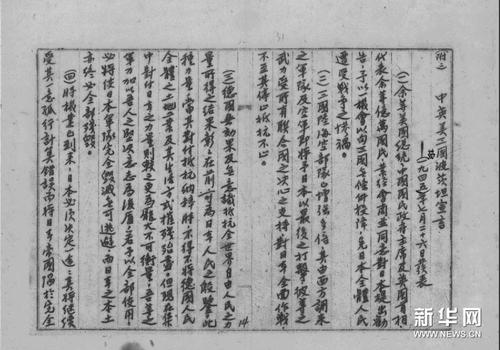 附二
中英美三國波茨坦宣言
(一九四五年七月二十六日發表)
(一)余等美國總統中國國民政府主席及英國首相
代表余等億萬國民業經會商並同意對日本提出勸
告,予以機會以向三國無條件投降,免日本全體人民
遭受戰爭之慘禍。
(二)三國陸海空部隊已增強多倍其由西方調來
之軍隊及空軍即將予日本以最後之打擊彼等之
武力受所有聯合國之決心之支持對日本全面作戰,
不至其停止抵抗不止。
(三)德國無効果及無意識抵抗全世界自由人民之力
量所得之結果彰彰在前可為日本人民之殷鑒,此
種力量當其對付抵抗納粹時不得不將德國人民
全體之土地工業及其生活方式摧殘殆盡,但現在集
中對付日本之力量則較之更為龐大不可衡量,吾等之
軍力加以吾人之堅決意志為後盾,若予以全部使用,
必將使日本軍隊完全毀滅無可逃避,而日本之本土
亦終必全部殘毀。
(四)時機業已到來,日本必須決定一途,其將繼續
受其一意孤行計算錯誤而將日本帝國陷於完全
14
新华网
NEWS.CN